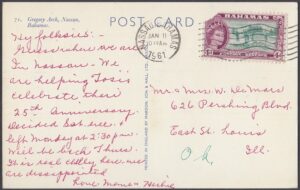 27 Gregory Arch, Nassau,
Bahamas.
POST CARD
NASSAU BAHAMAS
JAN 11
10:15 AM
1961
BAHAMAS
Hey folksies:-
Guess where we are
In Nassau - We
are helping
celebrate their
25th Anniversary.
Decided Sat. eve.
left Monday at 2:30 P.M.
Will be back Thurs.
It is real chilly here, we
are disappointed
Love Mema & Herbie
Mr & Mrs W. DeMar
626 Pershing Blvd.
East St. Louis
Ill.